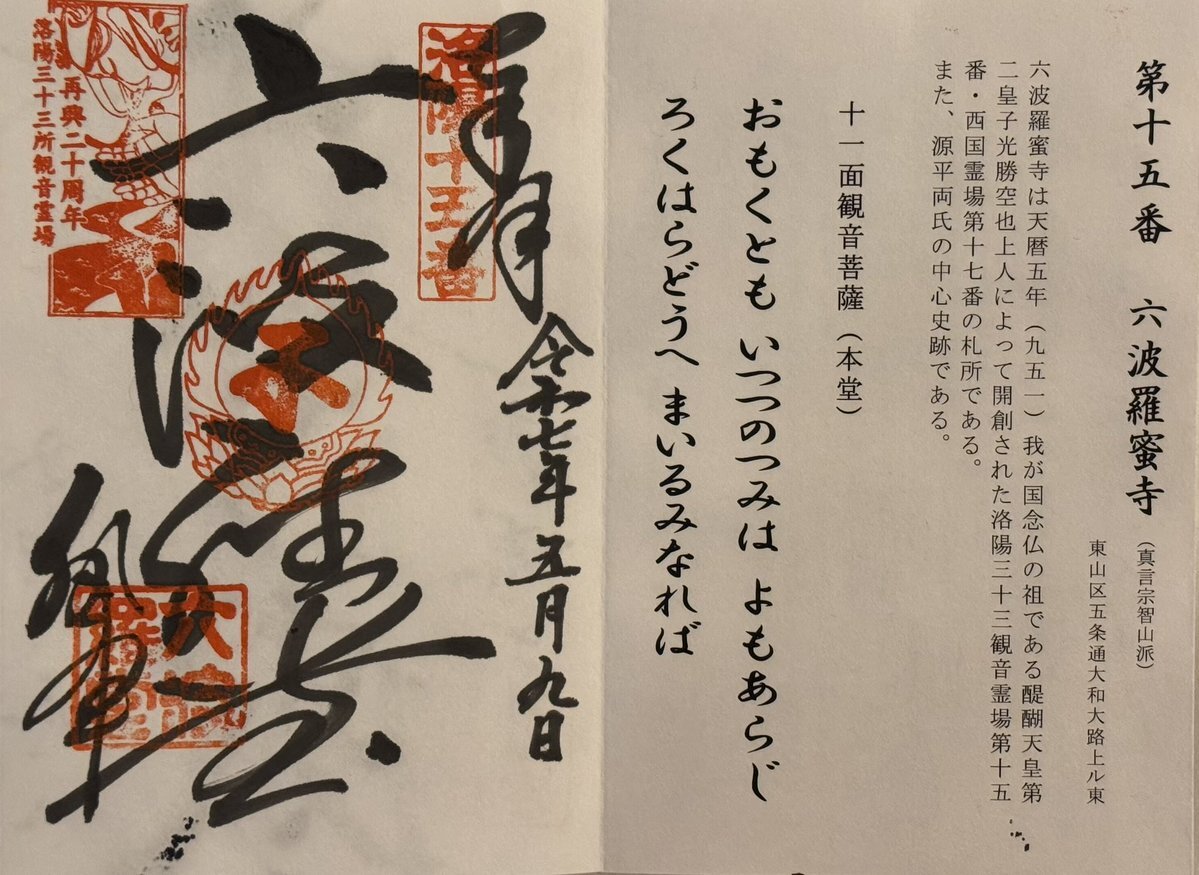 第十五番 六波羅蜜寺（真言宗智山派）
東山区五条通大和大路上ル東
六波羅蜜寺は天暦五年（九五一）我が国念仏の祖である醍醐天皇第
二皇子光勝空也上人によって開創された洛陽三十三観音霊場第十五
番・西国霊場第十七番の札所である。
また、源平両氏の中心史跡である。
十一面観音菩薩（本堂）
おもくとも いつつのつみは よもあらじ
ろくはらどうへ まいるみなれば
奉拝
洛陽十五番
令和七年五月九日
六波羅
再興二十周年
洛陽三十三所観音霊場